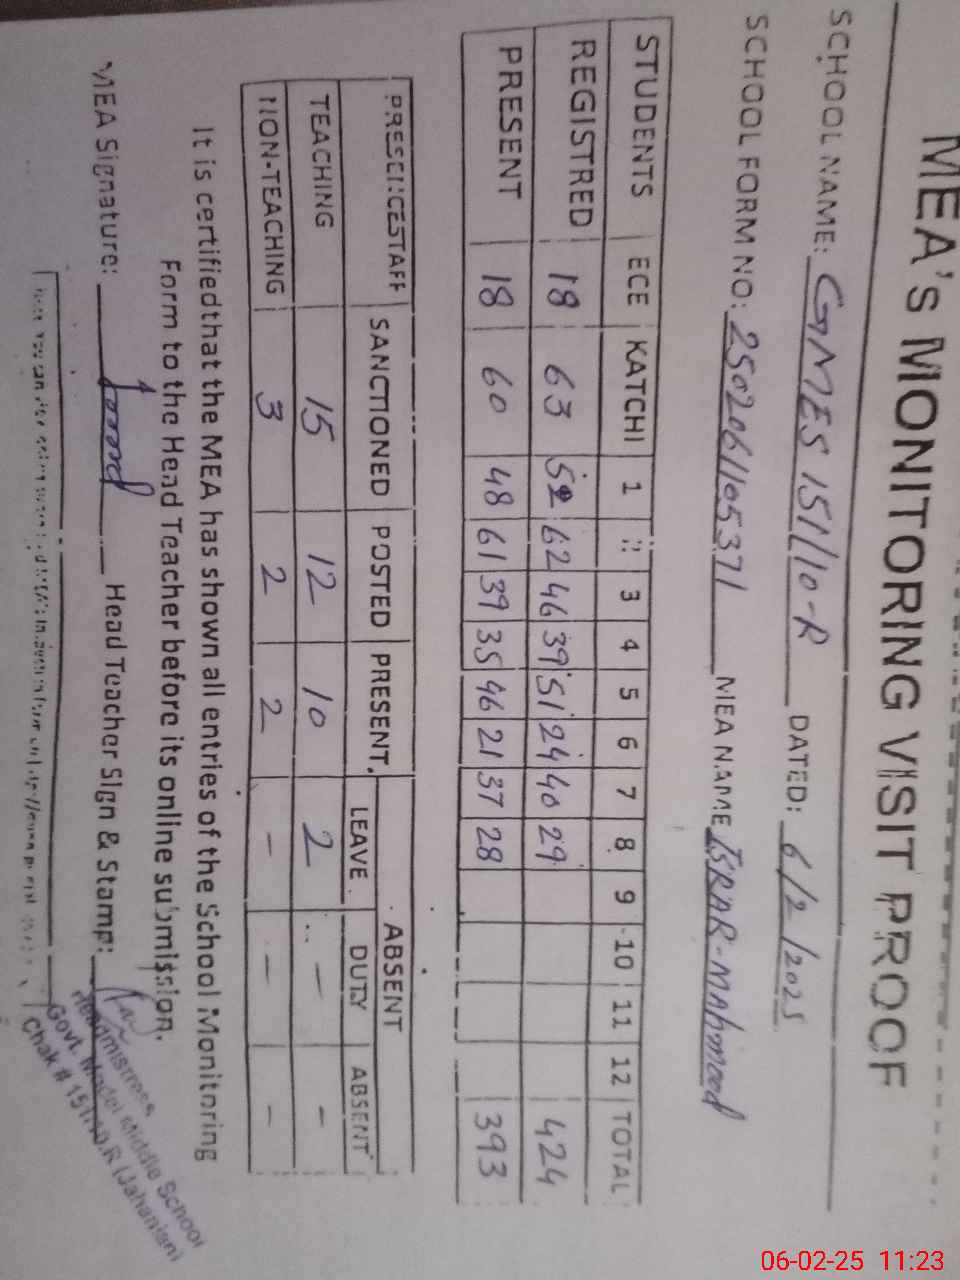 MEA's MONITORING VISIT PROOF
SCHOOL NAME: GMES 151/10-R DATED: 6/2/2025
SCHOOL FORM NO: 2502061105371 MEA NAME ISRAR-MAhmood
STUDENTS ECE KATCHI 1 2 3 4 5 6 7 8 9 10 11 12 TOTAL
REGISTRED 18 63 52 62 46 39 51 24 40 29 424
PRESENT 18 60 48 61 39 35 46 21 37 28 393
PRESENCESTAFF SANCTIONED POSTED PRESENT ABSENT
LEAVE DUTY ABSENT
TEACHING 15 12 10 2 - -
NON-TEACHING 3 2 2 - - -
It is certifiedthat the MEA has shown all entries of the School Monitoring
Form to the Head Teacher before its online submission.
MEA Signature: Head Teacher Sign & Stamp:
Headmistress
Govt. Model Middle School
Chak # 151/10.R (Jahanian)
06-02-25 11:23